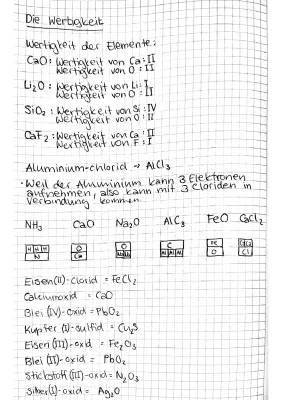 Die Wertigkeit
Wertigkeit der Elemente:
CaO: Wertigkeit von Ca: II
Wertigkeit von O: II
Li₂O: Wertigkeit von Li: I
Wertigkeit von O: II
SiO₂: Wertigkeit von Si: IV
Wertigkeit von O: II
CaF₂: Wertigkeit von Ca: II
Wertigkeit von F: I
Aluminium-chlorid → AlCl₃
• Weil der Aluminium kann 3 Elektronen
aufnehmen, also kann mit 3 Cloriden in
Verbindung kommen
NH₃ CaO Na₂O AlC₃ FeO CaCl₂
H H H O O C Fe
N Ca Al Al Al O Cl
Eisen(II)-clorid = FeCl₂
Calciumoxid = CaO
Blei (IV)-oxid = PbO₂
Kupfer (I)-sulfid = Cu₂S
Eisen (III)-oxid = Fe₂O₃
Blei (II)-oxid = PbO₂
Stickstoff (III)-oxid = N₂O₃
Silber(I)-oxid = Ag₂O